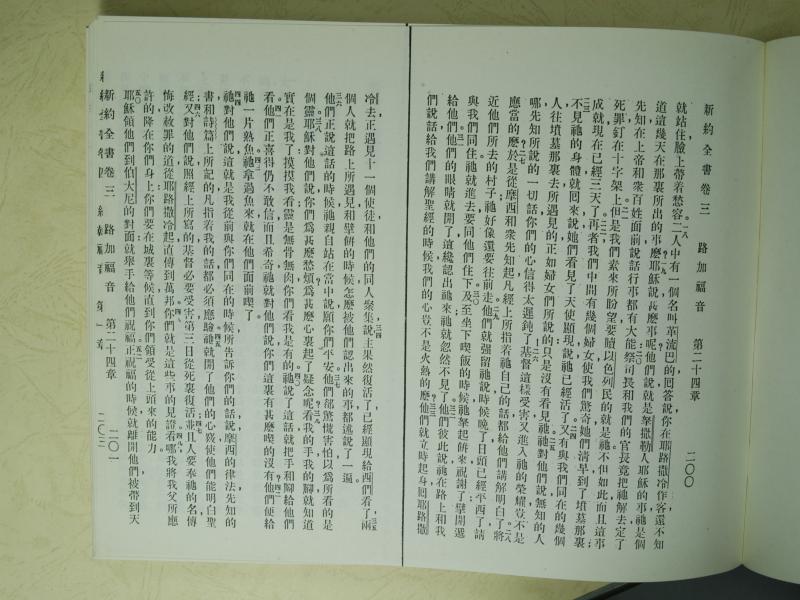 新約全書卷三　路加福音　第二十四章　二〇〇
就站住臉上帶着愁容二人中有一個名叫革流巴的回答說你在耶路撒冷作客還不知
道這幾天在那裏所出的事麼耶穌說甚麼事呢他們說就是拏撒勒人耶穌的事祂是個
先知在上帝和衆百姓面前說話行事都有大能祭司長和我們的官長竟把祂解去定了
死罪釘在十字架上但是我們素來所盼望要贖以色列民的就是祂不但如此而且這事
成就現在已經三天了再者我們中間有幾個婦女使我們驚奇她們清早到了墳墓那裏
不見祂的身體就回來說她們看見了天使顯現說祂已經活了又有與我們同在的幾個
人往墳墓那裏去所遇見的正如婦女們所說的只是沒有看見祂祂對他們說無知的人
哪先知所說的一切話你們的心信得太遲鈍了基督這樣受害又進入祂的榮耀豈不是
應當的麼於是從摩西和衆先知起凡經上所指着祂自己的話都給他們講解明白了將
近他們所去的村子祂好像還要往前走他們就強留祂說時候晚了日頭已經平西了請
與我們同住祂就進去要同他們住下及至坐下喫飯的時候祂拏起餅來祝謝了擘開遞
給他們他們的眼睛就開了這纔認出祂來祂就忽然不見了他們彼此說祂在路上和我
們說話給我們講解聖經的時候我們的心豈不是火熱的麼他們就立時起身回耶路撒
冷去正遇見十一個使徒和他們的同人聚集說主果然復活了已經顯現給西們看了兩
個人就把路上所遇見和擘餅的時候怎麼被他們認出來的事都述說了一遍
他們正說這話的時候祂親自站在當中說願你們平安他們卻驚慌害怕以爲所看的是
個靈耶穌對他們說你們爲甚麼愁煩爲甚麼心裏起了疑念呢看我的手我的腳就知道
實在是我了摸摸我看靈是無骨無肉你們看我是有的祂說了這話就把手和腳給他們
看他們正喜得仍不敢信而且希奇祂就對他們說你們這裏有甚麼喫的沒有他們便給
祂一片熟魚祂拿過魚來就在他們面前喫了
祂對他們說這就是我從前與你們同在的時候所告訴你們的話說摩西的律法先知的
書和詩篇上所記的凡指着我的話都必須應驗祂就開了他們的心竅使他們能明白聖
經又對他們說照所寫的基督必要受害第三日從死裏復活並且人要奉祂的名傳
悔改赦罪的道從耶路撒冷起直傳到萬邦你們就是這些事的見證看哪我將我父所應
許的降在你們身上你們要在城裏等候直到你們領受從上頭來的能力
耶穌領他們到伯大尼的對面就舉手給他們祝福正祝福的時候就離開他們被帶到天
新約全書卷三　路加福音　第二十四章　二〇一
二〇三